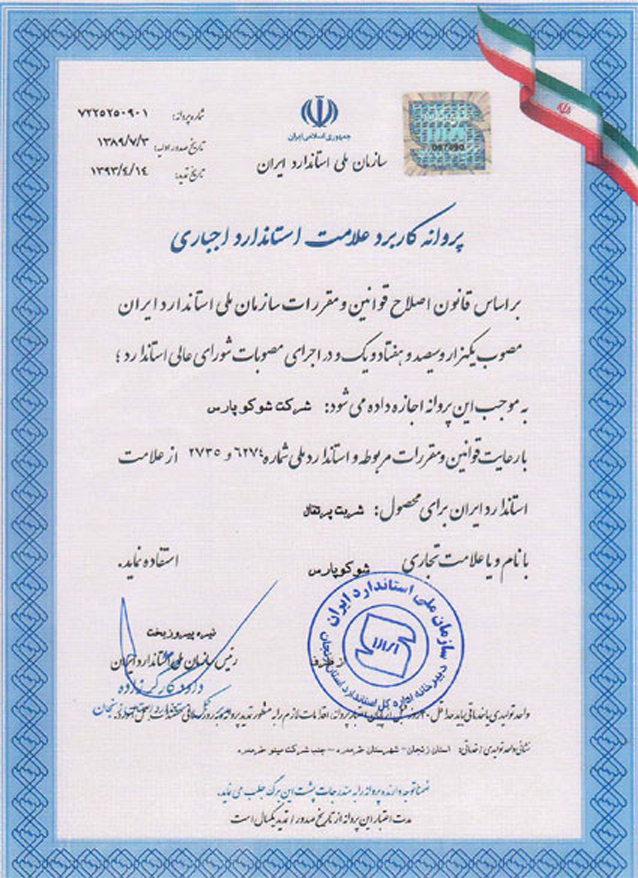 جمهوری اسلامی ایران
سازمان ملی استاندارد ایران
شماره پروانه: ۷۲۲۵۲۵۰۹۰۱
تاریخ صدور اولیه: ۱۳۸۹/۷/۳
تاریخ تمدید: ۱۳۹۳/٤/۱٤
پروانه کاربرد علامت استاندارد اجباری
بر اساس قانون اصلاح قوانین و مقررات سازمان ملی استاندارد ایران
مصوب یکهزار و سیصد و هفتاد و یک و در اجرای مصوبات شورای عالی استاندارد؛
به موجب این پروانه اجازه داده می شود: شرکت شوکو پارس
با رعایت قوانین و مقررات مربوطه و استاندارد ملی شماره ٦۲۷٤ و ۲۷۳٥ از علامت
استاندارد ایران برای محصول: شربت پرتقال
با نام و یا علامت تجاری شوکو پارس استفاده نماید.
نیره پیروزبخت
رئیس سازمان ملی استاندارد ایران
از طرف
سازمان ملی استاندارد ایران
دبیرخانه اداره کل استاندارد استان زنجان
نشانی واحد تولیدی / خدماتی: استان زنجان - شهرستان خرمدره - جنب شرکت مینو خرمدره
ضمنا توجه دارنده پروانه را به مندرجات پشت این برگ جلب می نماید.
مدت اعتبار این پروانه از تاریخ صدور / تمدید یکسال است